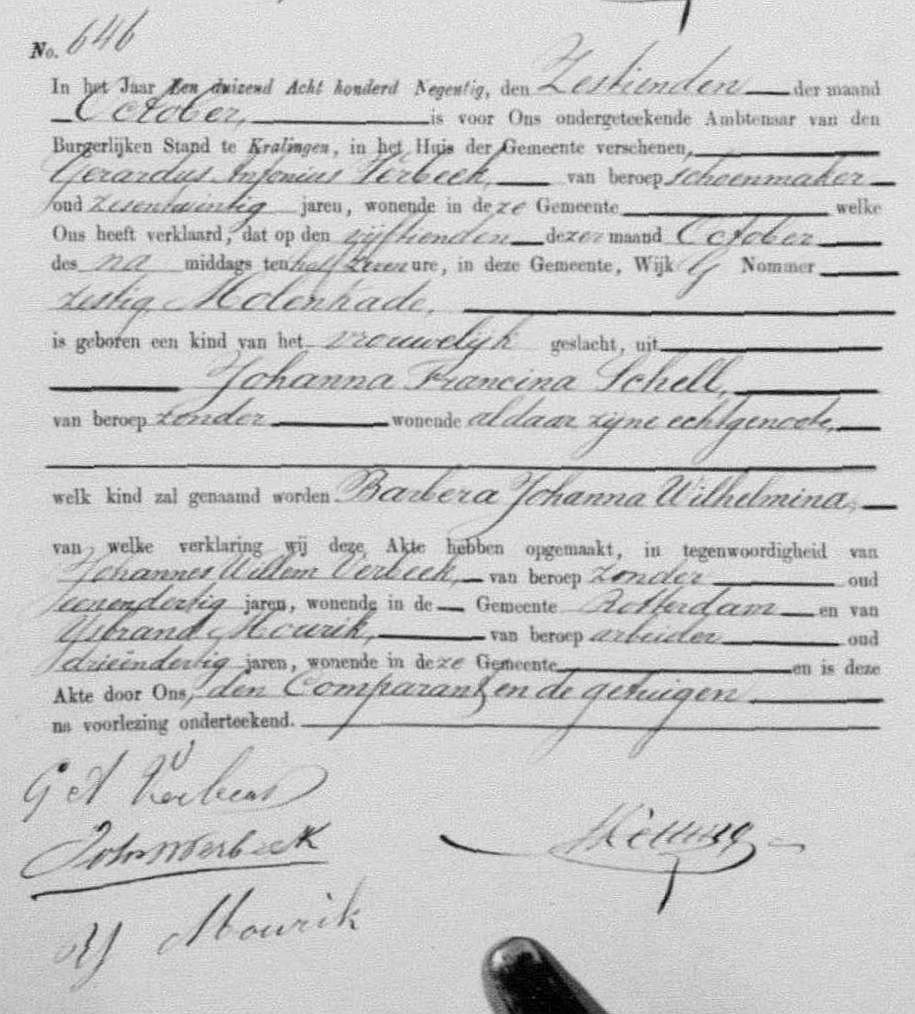 No. 646
In het Jaar Een duizend Acht honderd Negentig, den Zestienden der maand
October, is voor Ons ondergeteekende Ambtenaar van den
Burgerlijken Stand te Kralingen, in het Huis der Gemeente verschenen,
Gerardus Antonius Verbeek, van beroep schoenmaker
oud zesentwintig jaren, wonende in deze Gemeente welke
Ons heeft verklaard, dat op den vijftienden dezer maand October
des na middags ten half zeven ure, in deze Gemeente, Wijk G Nommer
zestig Molenkade,
is geboren een kind van het vrouwelijk geslacht, uit
Johanna Francina Schell,
van beroep zonder wonende aldaar zijne echtgenoote,
welk kind zal genaamd worden Barbera Johanna Wilhelmina,
van welke verklaring wij deze Akte hebben opgemaakt, in tegenwoordigheid van
Johannes Willem Verbeek, van beroep zonder oud
eenendertig jaren, wonende in de Gemeente Rotterdam en van
IJsbrand Mourik, van beroep arbeider oud
drieëndertig jaren, wonende in deze Gemeente en is deze
Akte door Ons, den Comparant en de getuigen
na voorlezing onderteekend.
G A Verbeek
Joh W Verbeek
IJ Mourik